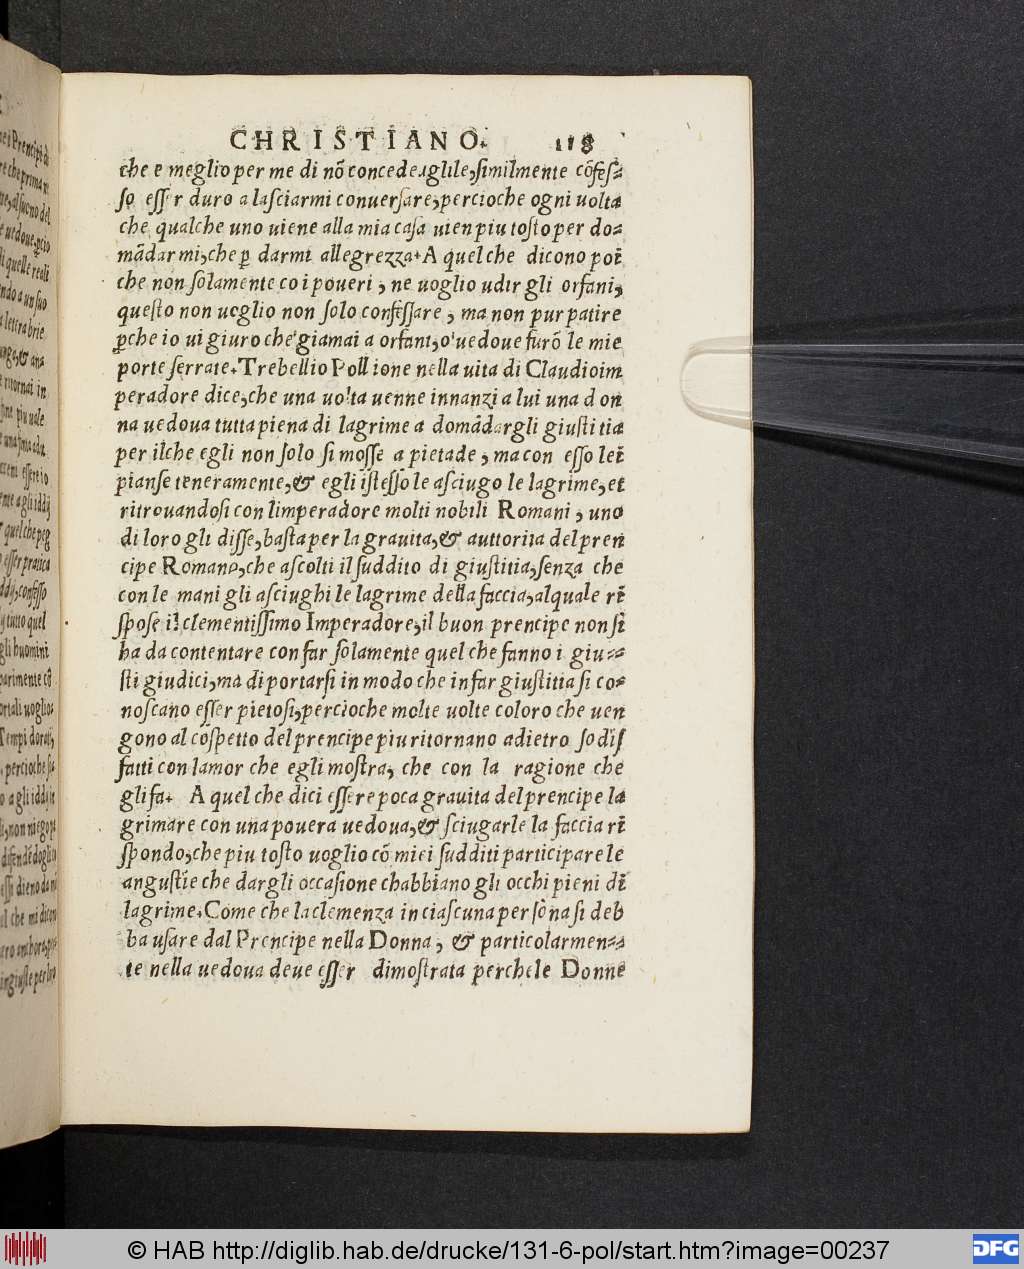 CHRISTIANO. 118
che e meglio per me di nõ concedeaglile, similmente cõfes=
so esser duro a lasciarmi conuersare, percioche ogni uolta
che qualche uno uiene alla mia casa uien piu tosto per do=
mãdarmi, che ꝑ darmi allegrezza. A quel che dicono poi
che non solamente co i poueri, ne uoglio udir gli orfani,
questo non uoglio non solo confessare, ma non pur patire
ꝑche io ui giuro che giamai a orfani, o' uedoue furõ le mie
porte serrate. Trebellio Pollione nella uita di Claudio im
peradore dice, che una uolta uenne innanzi a lui una don
na uedoua tutta piena di lagrime a domãdargli giustitia
per ilche egli non solo si mosse a pietade, ma con esso lei
pianse teneramente, & egli istesso le asciugo le lagrime, et
ritrouandosi con limperadore molti nobili Romani, uno
di loro gli disse, basta per la grauita, & auttorita del pren
cipe Romano, che ascolti il suddito di giustitia, senza che
con le mani gli asciughi le lagrime della faccia, al quale ri
spose il clementissimo Imperadore, il buon prencipe non si
ha da contentare con far solamente quel che fanno i giu=
sti giudici, ma di portarsi in modo che in far giustitia si co=
noscano esser pietosi, percioche molte uolte coloro che uen
gono al cõspetto del prencipe piu ritornano adietro sodis
fatti con lamor che egli mostra, che con la ragione che
gli fa. A quel che dici essere poca grauita del prencipe la
grimare con una pouera uedoua, & sciugarle la faccia ri
spondo, che piu tosto uoglio cõ miei sudditi participare le
angustie che dargli occasione chabbiano gli occhi pieni di
lagrime. Come che la clemenza in ciascuna persõna si deb
ba usare dal Prencipe nella Donna, & particolarmen=
te nella uedoua deue esser dimostrata perche le Donne
© HAB http://diglib.hab.de/drucke/131-6-pol/start.htm?image=00237
DFG